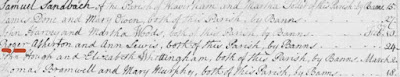 Samuel Sandbach of the Parish of and Martha of this Parish by
James Done and Mary Owen, both of this Parish, by Banns
John Harvey and Martha both of this Parish, by Banns
Roger Ashton and Ann Lewis, both of this Parish, by Banns 24
John Hough and Elizabeth Whittingham, both of this Parish, by Banns March
Thomas Bromwell and Mary Humphry, both of this Parish, by Banns